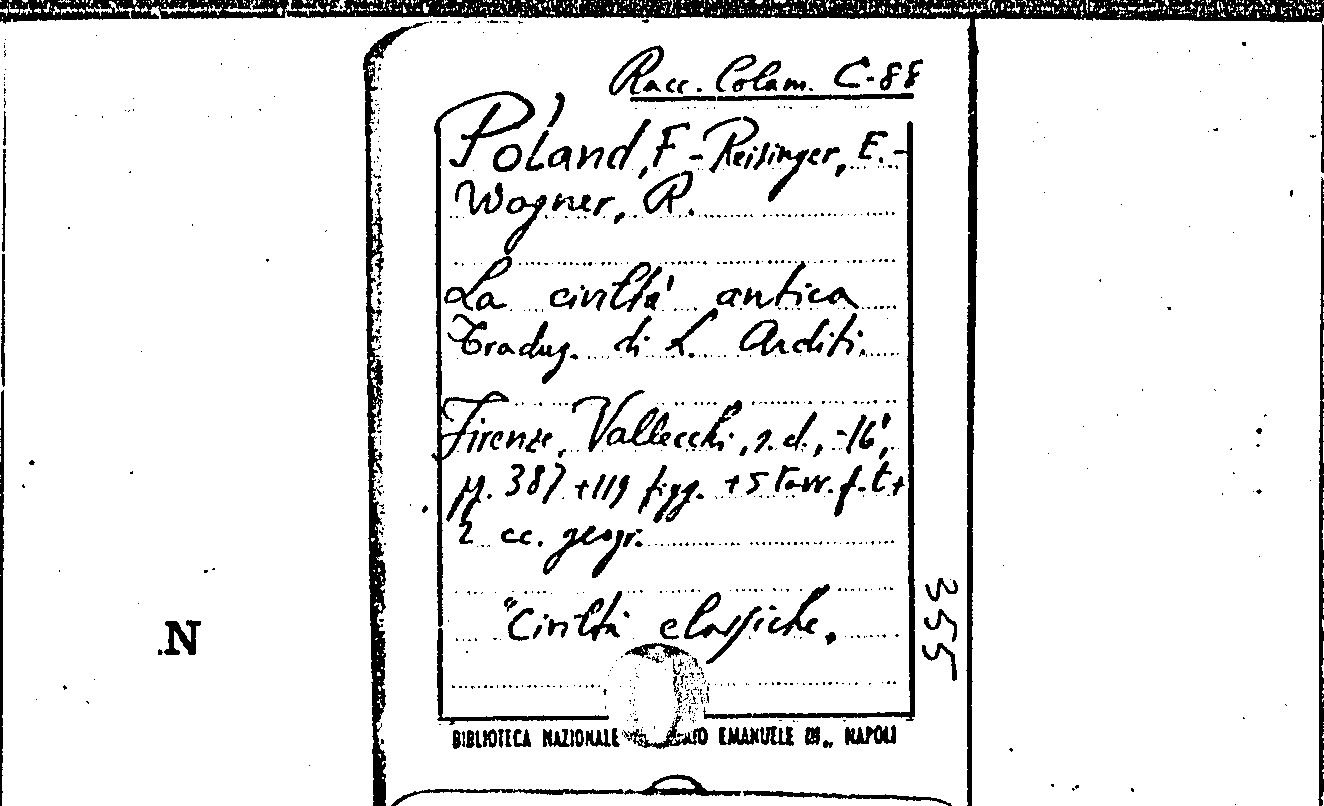 Racc. Colam. C-88
Poland, F - Reisinger, E. -
Wagner, R.
La civiltà antica
Traduz. di L. Arditi.
Firenze, Vallecchi, s. d., -16°,
pp. 387 + 119 figg. + 5 tavv. f. t. +
2 cc. geogr.
"Civiltà classiche.
355
N
BIBLIOTECA NAZIONALE EMANUELE III„ NAPOLI